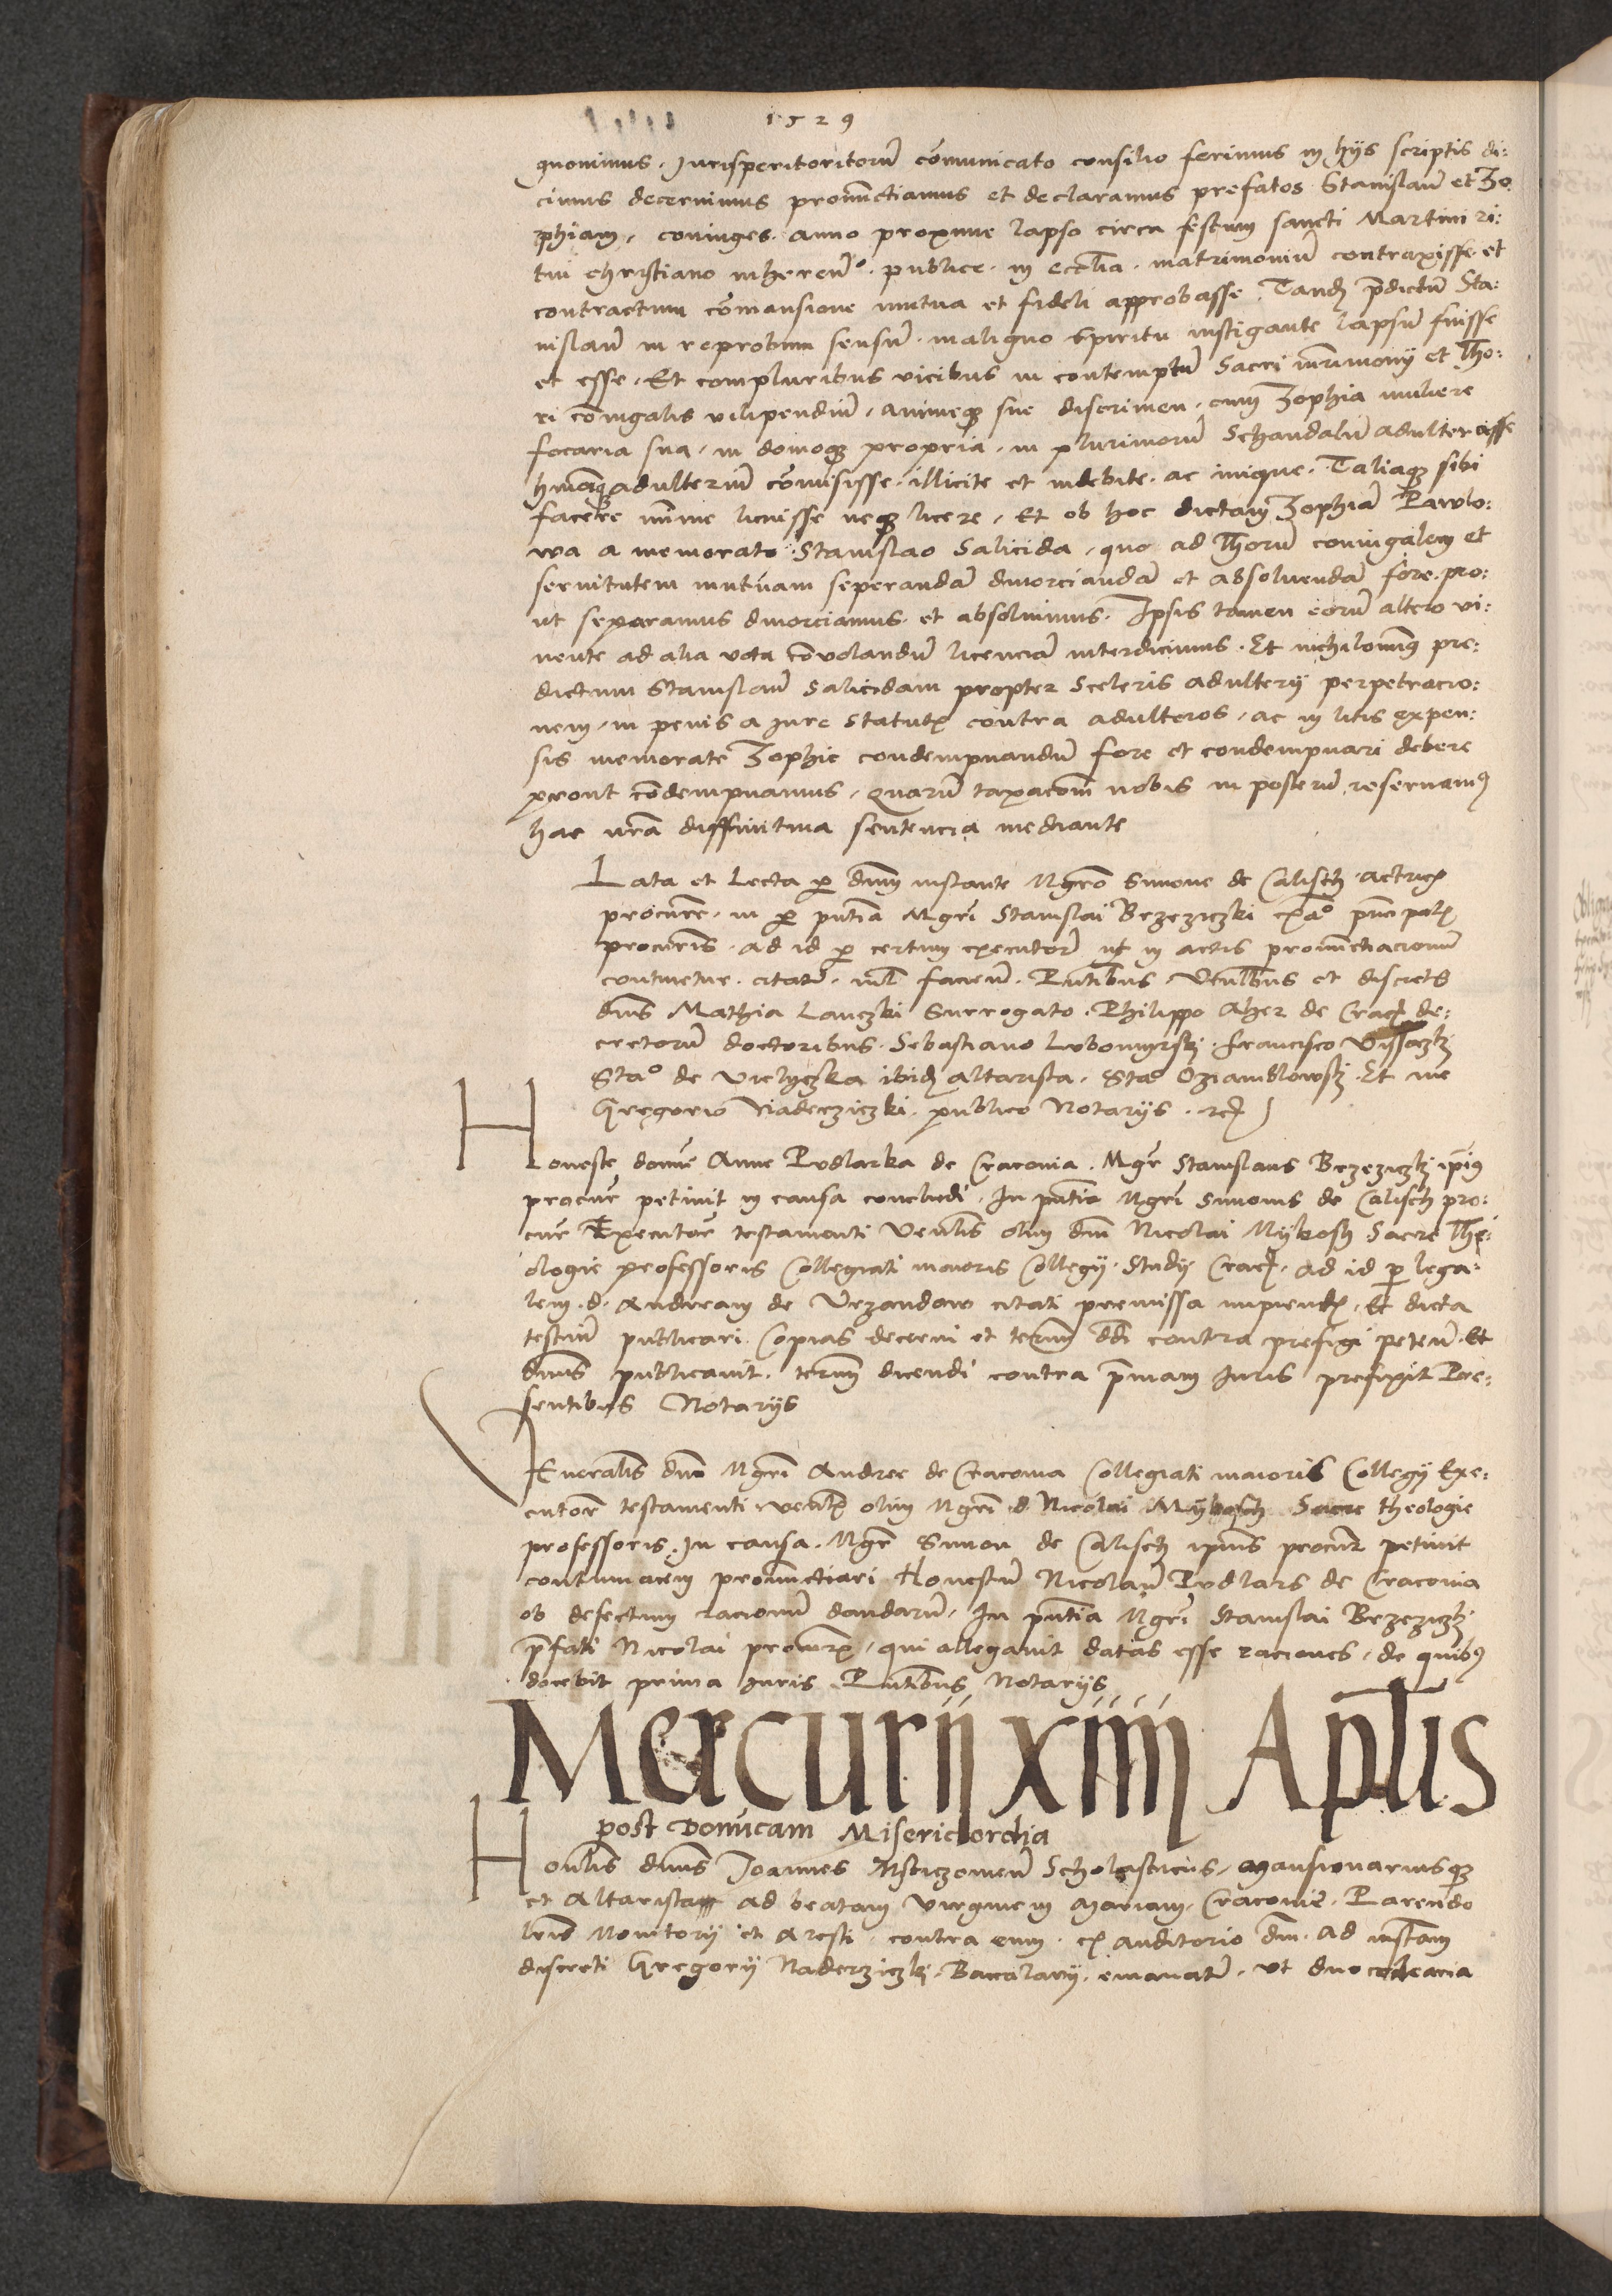 1529
quominus. Jurisperitoritorum comunicato consilio ferimus in hijs scriptis di:
cimus decernimus pronunctiamus et declaramus prefatos Stanislaum et Zo
phiam, coniuges. anno proxime lapso circa festum sancti Martini ri:
tui christiano inheren. publice. in ecclia. matrimonium contraxisse. et
contractum comansione mutua et fideli approbasse. Tandem predictum Sta:
nislaum in reprobum sensum. maligno spiritu instigante lapsum fuisse
et esse. Et compluribus vicibus in contemptum Sacri mrimonij et Tho:
ri coniugalis vilipendium, animeque sue discrimen. cum Zophia muliere
focaria sua, in domoque propria, in plurimorum Schandalum adulterasse
adulterium comisisse. illicite et indebite. ac inique. Taliaque sibi
facere mime licuisse neque licere, Et ob hoc dictam Zophiam Pawlo:
wa a memorato Stanislao Salicida, quo ad Thorum coniugalem et
seruitutem mutuam seperandam diuorciandam et absoluendam fore. pro:
ut separamus diuorciamus. et absoluimus. Ipsis tamen eorum altero vi:
uente ad alia vota conuolandum licenciam interdicimus. Et nichilominus pre:
dictum Stanislaum Salicidam propter Sceleris adulterij perpetracio:
nem, in penis a Jure Statutis contra adulteros, ac in litis expen:
sis memorate Zophie condempnandum fore et condempnari debere
prout condempnamus, Quarum taxacom nobis in posterum reseruamus
hac nra diffinitiua sentencia mediante
Lata et Lecta per dnm instante Mgro Simone de Calisch. actricis
procure. in per pntia Mgri Stanislai Brzeziczki principalis
procuris. ad id per certum executorem ut in actis pronunctiacionum
continetur. citatum. nil facien. Pntibus. Venlbus et discretis
dnis Mathia Lanczki Surrogato. Philippo Aher de Crac de:
cretorum doctoribus. Sebastiano Lubomyrski. Francisco
Stao de Vielyczka ibidem altarista. Stao Oziamblowski. Et me
Gregorio Naderziczki. publico Notarijs. etc
Honeste domine Anne Pudlarka de Cracouia. Mgr Stanislaus Brzeziczki ipsius
procur petiuit in causa concludi. In pntia Mgri Simonis de Calisch pro:
cur Executor testamenti Venlis olim dni Nicolai Mykosch Sacre The:
ologie professoris Collegiati maioris Collegij. Studij Crac. ad id per lega:
lem. d. Andream de Vrzandow citati premissa Et dicta
testium publicari Copias decerni et termin ddi contra prefigi peten. Et
dnus publicauit. termin dicendi contra primam Juris prefixit Pre:
sentibus Notarijs
Veneralis dno Mgri Andree de Cracouia Collegiati maioris Collegij Exe:
cutor testamenti venlis olim Mgri d Nicolai Mykosch Sacre theologie
professoris. In causa. Mgr Simon de Calisch ipsius procur petiuit
contumacem pronunctiari Honestum Nicolaum Pudlars de Cracouia
ob defectum racionum dandarum. In pntia Mgri Stanislai Brzeziczki
prefati Nicolai procuris, qui allegauit datas esse raciones, de quibus
docebit prima Juris Pntibus Notarijs
Mercurij xiiij Aplis
post Donicam Misericordia
Honlis dnus Joannes Scholasticus, Mansionariusque
et Altarista ad beatam virginem Mariam. Cracouie. Parendo
lris Monitorij et Aresti contra eum. ex auditorio dni. ad instam
discreti Gregorij Naderziczki. Baccalarij. emanatum. ut duo coclearia